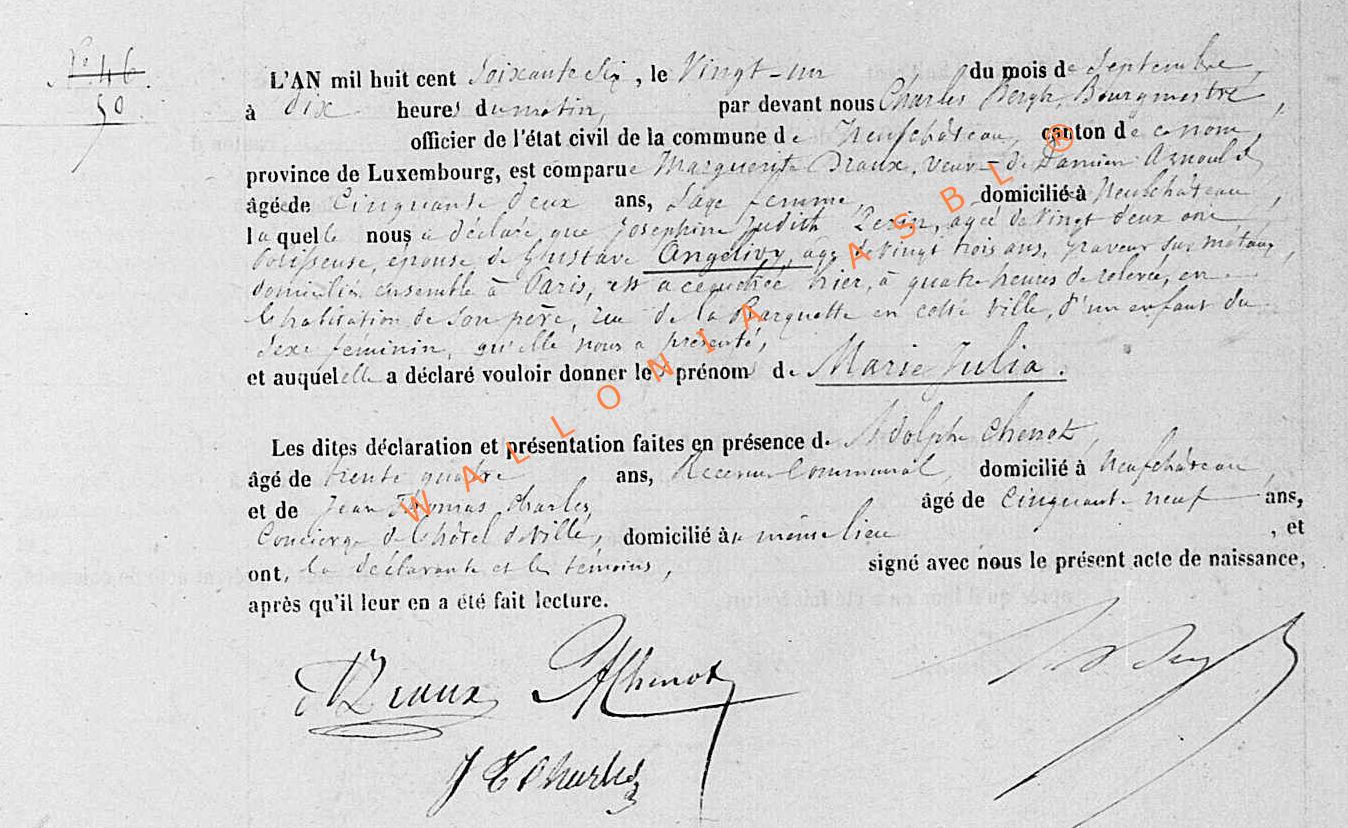 N° 46
50
L'AN mil huit cent soixante six, le vingt-un du mois de Septembre,
à dix heures du matin, par devant nous Charles Bergh, Bourgmestre,
officier de l'état civil de la commune de Neufchâteau, canton de ce nom,
province de Luxembourg, est comparue Marguerite Draux, veuve de Damien Arnould
âgé de cinquante deux ans, sage femme, domicilié à Neufchâteau,
laquelle nous a déclaré que Joséphine Judith, agée de vingt deux ans
épouse de Gustave Angelivy, agé de vingt trois ans, graveur sur métaux,
domiciliés ensemble à Paris, est accouchée hier, à quatre heures de relevée, en
l'habitation de son père, rue de la Barquette en cette ville, d'un enfant du
sexe féminin, qu'elle nous a présenté,
et auquel elle a déclaré vouloir donner les prénoms de Marie Julia.
Les dites déclaration et présentation faites en présence de Adolphe Chenot,
âgé de trente quatre ans, Receveur Communal, domicilié à Neufchâteau,
et de Jean Thomas Charles, âgé de cinquante neuf ans,
Concierge de l'hôtel de ville, domicilié au même lieu, et
ont, la déclarante et les témoins, signé avec nous le présent acte de naissance,
après qu'il leur en a été fait lecture.
Draux AChenot
J T Charles
WALLONIA ASBL ®